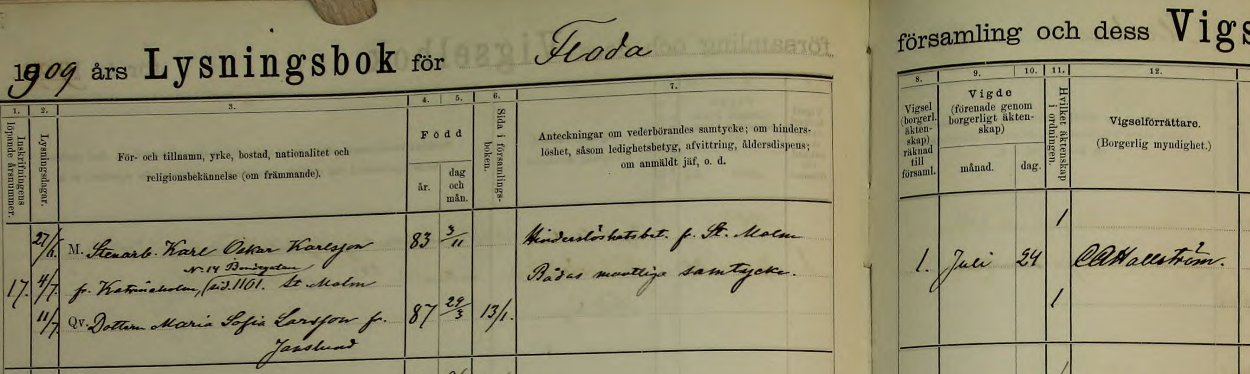 1909 års Lysningsbok för Floda
församling och dess Vigs
1.
2.
3.
4.
5.
6.
7.
8.
9.
10.
11.
12.
Inskrifningens
löpande årsnummer.
Lysningsdagar.
För- och tillnamn, yrke, bostad, nationalitet och
religionsbekännelse (om främmande).
Född
år.
dag
och
mån.
Sida i församlings-
boken.
Anteckningar om vederbörandes samtycke; om hinders-
löshet, såsom ledighetsbetyg, afvittring, åldersdispens;
om anmäldt jäf, o. d.
Vigsel
(borgerl.
äkten-
skap)
räknad
till
församl.
Vigde
(förenade genom
borgerligt äkten-
skap)
månad.
dag.
Hvilket äktenskap
i ordningen.
Vigselförrättare.
(Borgerlig myndighet.)
27/6. M. Stenarb. Karl Oskar Karlsson 83 3/11 Hinderslöshetsbet. fr. St. Malm 1
No 14
17. 4/7. fr. Katrineholm, sid. 1101. St Malm Bådas muntliga samtycke. 1. Juli 24 C A Hallström.
11/7. Qv. Dottern Maria Sofia Larsson fr. 87 29/3 13/1. 1